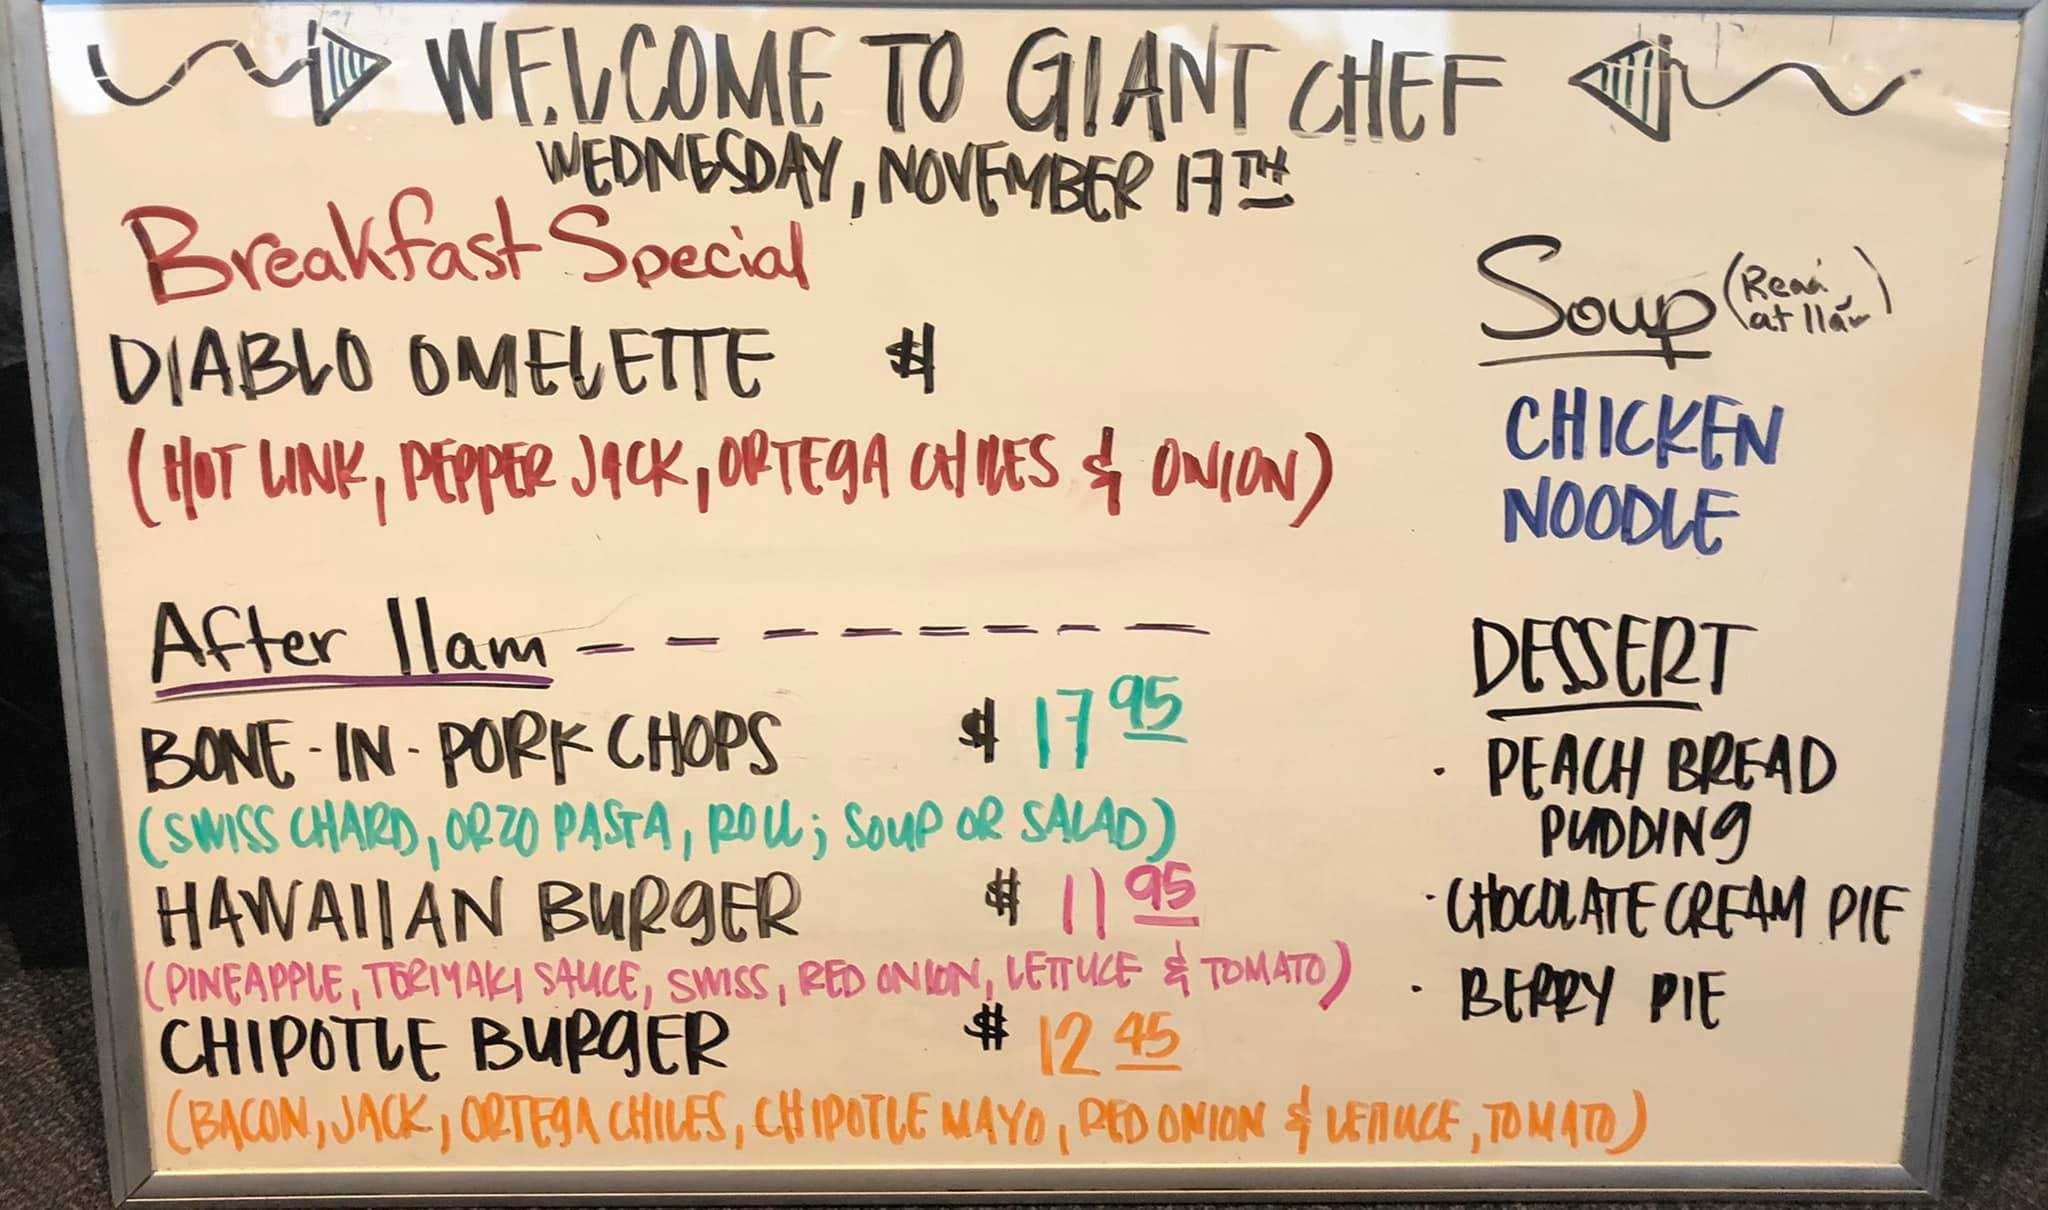 WELCOME TO GIANT CHEF
WEDNESDAY, NOVEMBER 17TH
Breakfast Special
DIABLO OMELETTE $
(HOT LINK, PEPPER JACK, ORTEGA CHILES & ONION)
After 11am
BONE-IN-PORK CHOPS $ 17 95
(SWISS CHARD, ORZO PASTA, ROLL; SOUP OR SALAD)
HAWAIIAN BURGER $ 11 95
(PINEAPPLE, TERIYAKI SAUCE, SWISS, RED ONION, LETTUCE & TOMATO)
CHIPOTLE BURGER $ 12 45
(BACON, JACK, ORTEGA CHILES, CHIPOTLE MAYO, RED ONION & LETTUCE, TOMATO)
Soup
at 11am)
CHICKEN
NOODLE
DESSERT
· PEACH BREAD
PUDDING
· CHOCOLATE CREAM PIE
· BERRY PIE